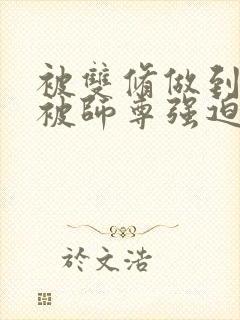 被雙脩做到
被師尊强迫
於文浩